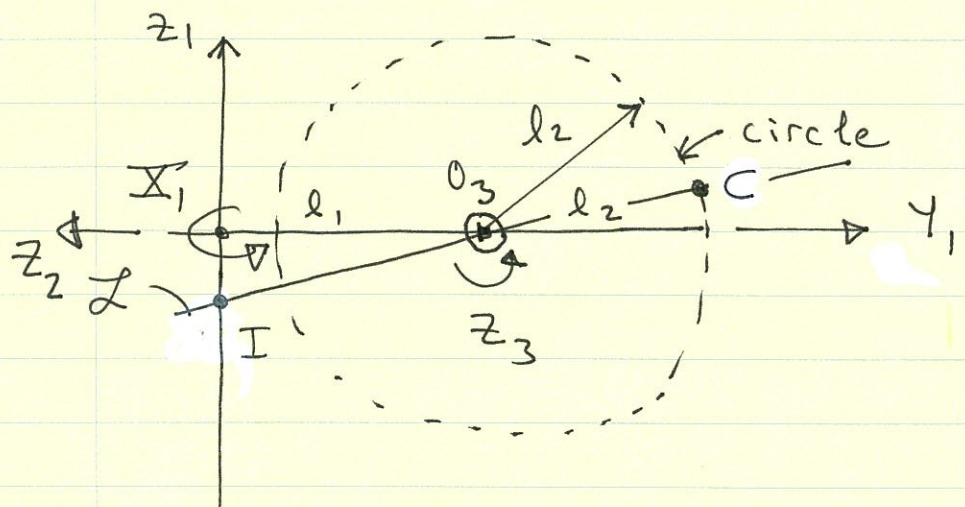 Z1
l2
circle
X1
l1
O3
l2
C
Y1
Z2
L
I
Z3